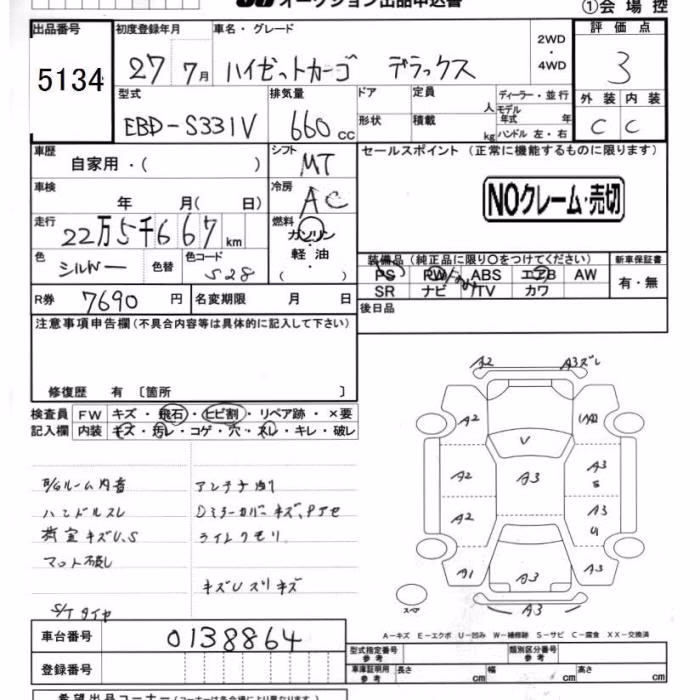 オークション出品申込書 ①会場控
出品番号 初度登録年月 車名・グレード 2WD・4WD 評価点
5134 27年 7月 ハイゼットカーゴ デラックス 3
型式 排気量 ドア 定員 人 ディーラー・並行 外装 内装
EBD-S331V 660cc 形状 積載 kg モデル年式 年 ハンドル 左・右 C C
車歴 自家用・( ) シフト MT セールスポイント (正常に機能するものに限ります)
車検 年 月( 日) 冷房 AC NOクレーム・売切
走行 22万5千667km 燃料 ガソリン・軽油・( )
色 シルバー 色替 色コード S28 装備品(純正品に限り○をつけてください) 新車保証書
PS PW ABS エアB AW 有・無
R券 7690円 名変期限 月 日 SR ナビ TV カワ
注意事項申告欄(不具合内容等は具体的に記入して下さい) 後日品
修復歴 有 〔箇所 〕
検査員 FW キズ・飛石・ヒビ割・リペア跡・×要
記入欄 内装 キズ・汚レ・コゲ・穴・スレ・キレ・破レ
ルーム内
アンテナ
ハンドルスレ
Dミラーカバーキズ、
荷室キズU、S
ライトクモリ
マット
キズUスリキズ
S/Tタイヤ
A2 A3ズレ
A2
V
A2 A3 A3 S
A2 A3 U
A1 A3 A2
A3
スペア
A-キズ E-エクボ U-凹み W-補修跡 S-サビ C-腐食 XX-交換済
車台番号 0138864 型式指定番号 参考 類別区分番号 参考
登録番号 車庫証明用 参考 長さ cm 幅 cm 高さ cm
希望出品コーナー(コーナーは各会場により異なります)